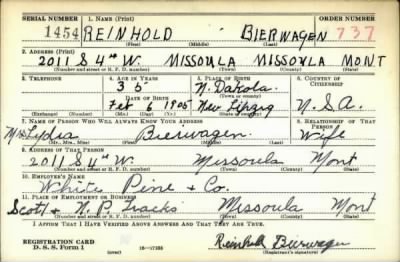 SERIAL NUMBER 1. NAME (Print) ORDER NUMBER
1454 REINHOLD BIERWAGEN 737
(First) (Middle) (Last)
2. ADDRESS (Print)
2011 S 4th W. MISSOULA MISSOULA MONT
(Number and street or R. F. D. number) (Town) (County) (State)
3. TELEPHONE 4. AGE IN YEARS 5. PLACE OF BIRTH 6. COUNTRY OF CITIZENSHIP
35 N. Dakota
DATE OF BIRTH (Town or county)
Feb 6 1905 New Lipzig U.S.A.
(Exchange) (Number) (Mo.) (Day) (Yr.) (State or country)
7. NAME OF PERSON WHO WILL ALWAYS KNOW YOUR ADDRESS 8. RELATIONSHIP OF THAT PERSON
Mrs Lydia Bierwagen Wife
(Mr., Mrs., Miss) (First) (Middle) (Last)
9. ADDRESS OF THAT PERSON
2011 S 4th W. Missoula Mont
(Number and street or R. F. D. number) (Town) (County) (State)
10. EMPLOYER'S NAME
White Pine + Co.
11. PLACE OF EMPLOYMENT OR BUSINESS
Scott + N. P. Tracks Missoula Mont
(Number and street or R. F. D. number) (Town) (County) (State)
I AFFIRM THAT I HAVE VERIFIED ABOVE ANSWERS AND THAT THEY ARE TRUE.
REGISTRATION CARD
D. S. S. Form 1 16-17105 Reinhold Bierwagen